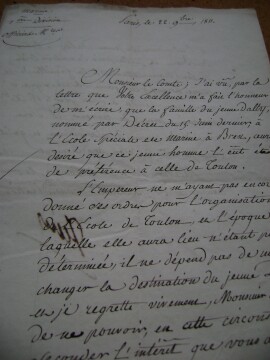 Paris le 22 9bre 181
Monsieur le Comte, J'ai vu, par la
lettre que Votre Excellence m'a fait l'honneur
de m'écrire, que la famille du jeune Dalby,
nommé par Décret du 15 Juin dernier, à
l'Ecole Spéciale de marine à Brest, aurait
désiré que ce jeune homme l'eut été
de préférence à celle de Toulon.
L'Empereur ne m'ayant pas encore
donné ses ordres pour l'organisation
Ecole de Toulon et l'époque
laquelle elle aura lieu n'étant p
déterminée, il ne dépend pas de m
changer la destination du jeune
et je regrette vivement, Monsieur
de ne pouvoir, en cette circons
seconder l'intérêt que vous